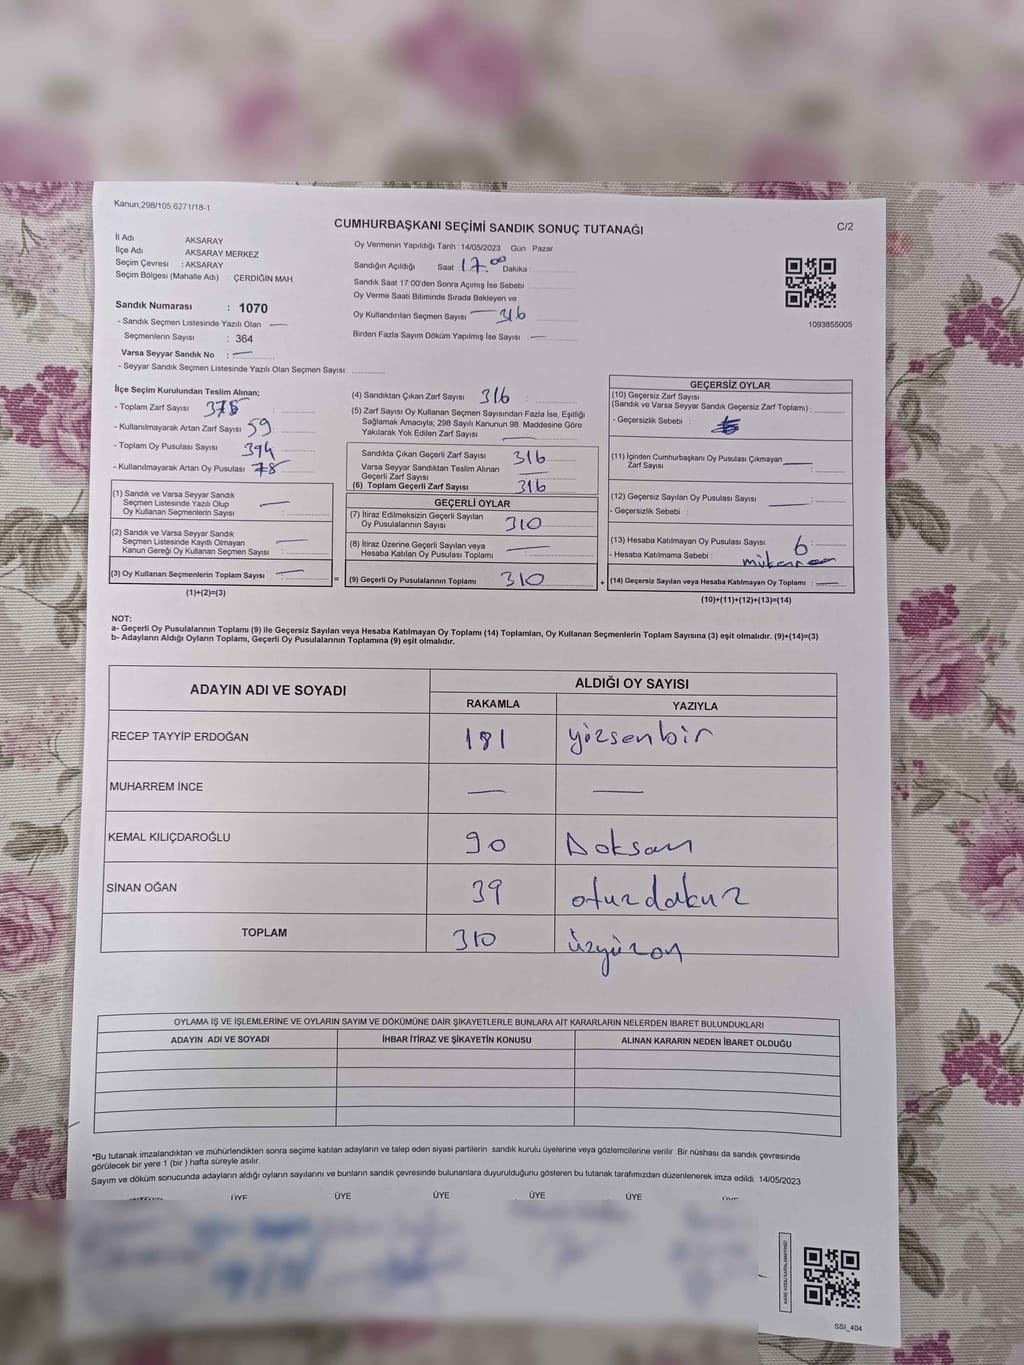 Kanun,298/105,6271/18-1
CUMHURBAŞKANI SEÇİMİ SANDIK SONUÇ TUTANAĞI
C/2
İl Adı AKSARAY
İlçe Adı AKSARAY MERKEZ
Seçim Çevresi : AKSARAY
Seçim Bölgesi (Mahalle Adı) ÇERDİĞİN MAH.
Sandık Numarası : 1070
- Sandık Seçmen Listesinde Yazılı Olan
Seçmenlerin Sayısı : 364
Varsa Seyyar Sandık No :
- Seyyar Sandık Seçmen Listesinde Yazılı Olan Seçmen Sayısı:
Oy Vermenin Yapıldığı Tarih : 14/05/2023 Gün Pazar
Sandığın Açıldığı Saat 17.00 Dakika
Sandık Saat 17.00'den Sonra Açımış İse Sebebi
Oy Verme Saati Bitiminde Sırada Bekleyen ve
Oy Kullandırılan Seçmen Sayısı 316
Birden Fazla Sayım Döküm Yapılmış İse Sayısı :
1093855005
İlçe Seçim Kurulundan Teslim Alınan;
- Toplam Zarf Sayısı 375
- Kullanılmayarak Artan Zarf Sayısı 59
- Toplam Oy Pusulası Sayısı 394
- Kullanılmayarak Artan Oy Pusulası 78
(1) Sandık ve Varsa Seyyar Sandık
Seçmen Listesinde Yazılı Olup
Oy Kullanan Seçmenlerin Sayısı :
(2) Sandık ve Varsa Seyyar Sandık
Seçmen Listesinde Kayıtlı Olmayan
Kanun Gereği Oy Kullanan Seçmen Sayısı :
(3) Oy Kullanan Seçmenlerin Toplam Sayısı :
(1)+(2)=(3)
=
(4) Sandıktan Çıkan Zarf Sayısı 316
(5) Zarf Sayısı Oy Kullanan Seçmen Sayısından Fazla İse, Eşitliği
Sağlamak Amacıyla; 298 Sayılı Kanunun 98. Maddesine Göre
Yakılarak Yok Edilen Zarf Sayısı
Sandıkta Çıkan Geçerli Zarf Sayısı 316
Varsa Seyyar Sandıktan Teslim Alınan
Geçerli Zarf Sayısı
(6) Toplam Geçerli Zarf Sayısı 316
GEÇERLİ OYLAR
(7) İtiraz Edilmeksizin Geçerli Sayılan
Oy Pusulalarının Sayısı 310
(8) İtiraz Üzerine Geçerli Sayılan veya
Hesaba Katılan Oy Pusulası Toplamı
(9) Geçerli Oy Pusulalarının Toplamı 310
+
GEÇERSİZ OYLAR
(10) Geçersiz Zarf Sayısı
(Sandık ve Varsa Seyyar Sandık Geçersiz Zarf Toplamı) :
- Geçersizlik Sebebi :
(11) İçinden Cumhurbaşkanı Oy Pusulası Çıkmayan
Zarf Sayısı
(12) Geçersiz Sayılan Oy Pusulası Sayısı :
- Geçersizlik Sebebi :
(13) Hesaba Katılmayan Oy Pusulası Sayısı 6
- Hesaba Katılmama Sebebi :
(14) Geçersiz Sayılan veya Hesaba Katılmayan Oy Toplamı :
(10)+(11)+(12)+(13)=(14)
NOT:
a- Geçerli Oy Pusulalarının Toplamı (9) ile Geçersiz Sayılan veya Hesaba Katılmayan Oy Toplamı (14) Toplamları, Oy Kullanan Seçmenlerin Toplam Sayısına (3) eşit olmalıdır. (9)+(14)=(3)
b- Adayların Aldığı Oyların Toplamı, Geçerli Oy Pusulalarının Toplamına (9) eşit olmalıdır.
ADAYIN ADI VE SOYADI
ALDIĞI OY SAYISI
RAKAMLA YAZIYLA
RECEP TAYYİP ERDOĞAN 181 yüzsenbir
MUHARREM İNCE
KEMAL KILIÇDAROĞLU 90 Doksan
SİNAN OĞAN 39 otuzdokuz
TOPLAM 310 üzyüzon
OYLAMA İŞ VE İŞLEMLERİNE VE OYLARIN SAYIM VE DÖKÜMÜNE DAİR ŞİKAYETLERLE BUNLARA AİT KARARLARIN NELERDEN İBARET BULUNDUKLARI
ADAYIN ADI VE SOYADI İHBAR İTİRAZ VE ŞİKAYETİN KONUSU ALINAN KARARIN NEDEN İBARET OLDUĞU
*Bu tutanak imzalandıktan ve mühürlendikten sonra seçime katılan adayların ve talep eden siyasi partilerin sandık kurulu üyelerine veya gözlemcilerine verilir Bir nüshası da sandık çevresinde
görülecek bir yere 1 (bir ) hafta süreyle asılır.
Sayım ve döküm sonucunda adayların aldığı oyların sayılarını ve bunların sandık çevresinde bulunanlara duyurulduğunu gösteren bu tutanak tarafımızdan düzenlenerek imza edildi. 14/05/2023
ÜYE ÜYE ÜYE ÜYE ÜYE
SSI_404